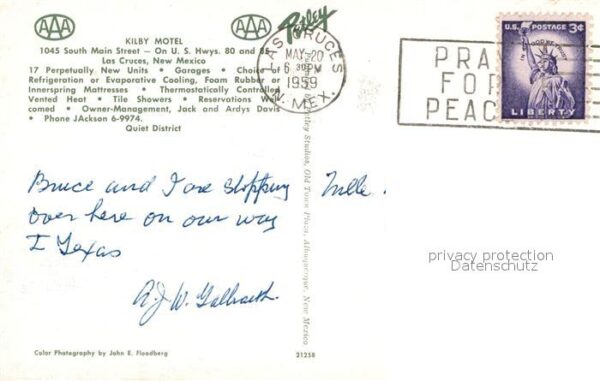 AAA
AAA
KILBY MOTEL
1045 South Main Street — On U. S. Hwys. 80 and 85
Las Cruces, New Mexico
17 Perpetually New Units • Garages • Choice of
Refrigeration or Evaporative Cooling, Foam Rubber or
Innerspring Mattresses • Thermostatically Controlled
Vented Heat • Tile Showers • Reservations Wel-
comed • Owner-Management, Jack and Ardys Davis
• Phone JAckson 6-9974.
Quiet District
Petley
LAS CRUCES
MAY 20
6 30 PM
1959
N. MEX.
PRA
FOR
PEAC
U.S. POSTAGE 3¢
IN GOD WE TRUST
LIBERTY
Bruce and I are stopping
over here on our way
I Texas
A.J.W. Galbraith.
Petley Studios, Old Town Plaza, Albuquerque, New Mexico
privacy protection
Datenschutz
Color Photography by John E. Floodberg
21258